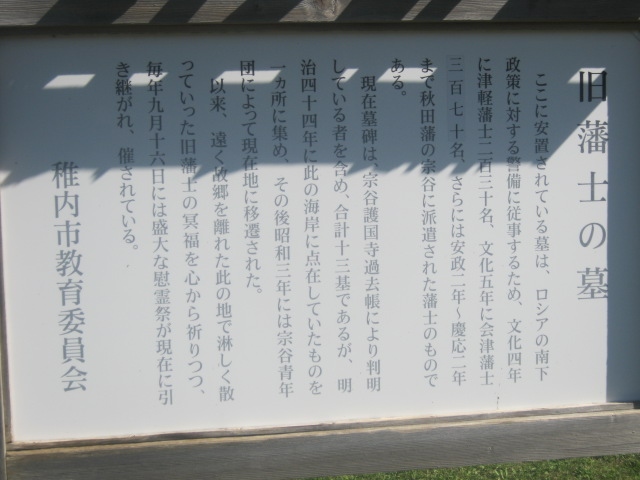 旧藩士の墓
ここに安置されている墓は、ロシアの南下
政策に対する警備に従事するため、文化四年
に津軽藩士二百三十名、文化五年に会津藩士
三百七十名、さらには安政二年～慶応二年
まで秋田藩の宗谷に派遣された藩士のもので
ある。
現在墓碑は、宗谷護国寺過去帳により判明
している者を含め、合計十三基であるが、明
治四十四年に此の海岸に点在していたものを
一ヵ所に集め、その後昭和三年には宗谷青年
団によって現在地に移遷された。
以来、遠く故郷を離れた此の地で淋しく散
っていった旧藩士の冥福を心から祈りつつ、
毎年九月十六日には盛大な慰霊祭が現在に引
き継がれ、催されている。
稚内市教育委員会